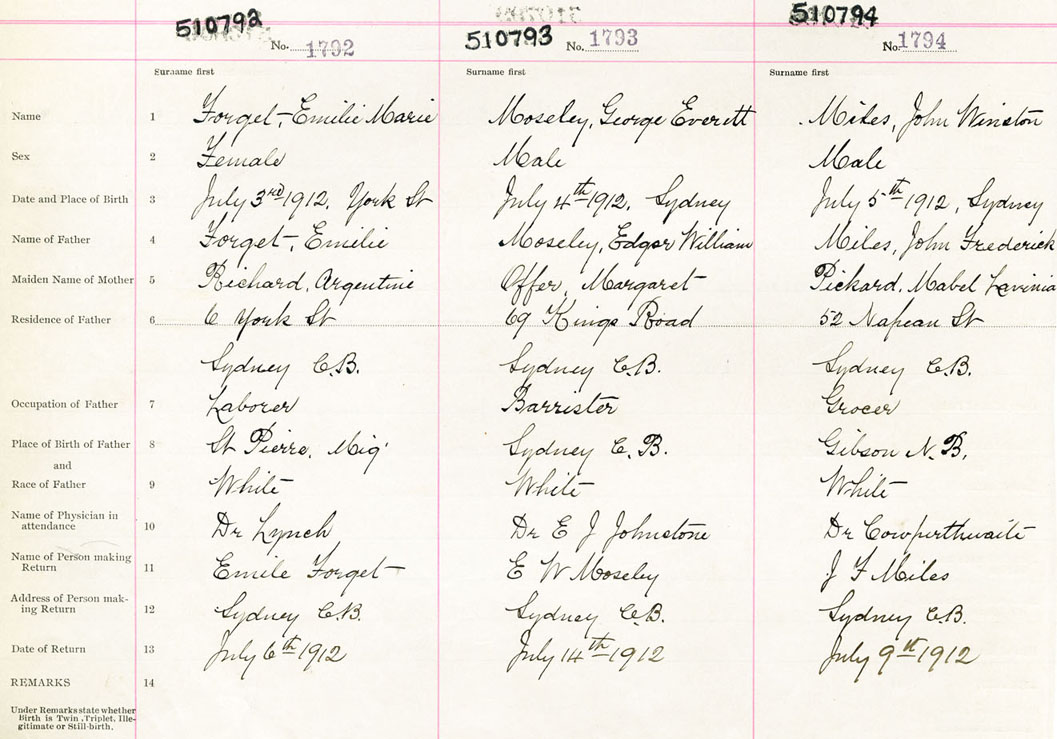 510792 510793 510794
No. 1792 No. 1793 No. 1794
Surname first Surname first Surname first
Name 1 Forget, Emilie Marie Moseley, George Everett Miles, John Winston
Sex 2 Female Male Male
Date and Place of Birth 3 July 3rd 1912, York St July 4th 1912, Sydney July 5th 1912, Sydney
Name of Father 4 Forget, Emilie Moseley, Edgar William Miles, John Frederick
Maiden Name of Mother 5 Richard, Argentine Offer, Margaret Pickard, Mabel Lavinia
Residence of Father 6 6 York St 69 Kings Road 52 Napean St
Sydney C.B. Sydney C.B. Sydney C.B.
Occupation of Father 7 Laborer Barrister Grocer
Place of Birth of Father 8 St Pierre, Miq' Sydney C.B. Gibson N.B.
and
Race of Father 9 White White White
Name of Physician in
attendance 10 Dr Lynch Dr E J Johnstone Dr Cowperthwaite
Name of Person making
Return 11 Emile Forget E W Moseley J F Miles
Address of Person mak-
ing Return 12 Sydney C.B. Sydney C.B. Sydney C.B.
Date of Return 13 July 6th 1912 July 14th 1912 July 9th 1912
REMARKS 14
Under Remarks state whether
Birth is Twin, Triplet, Ille-
gitimate or Still-birth.